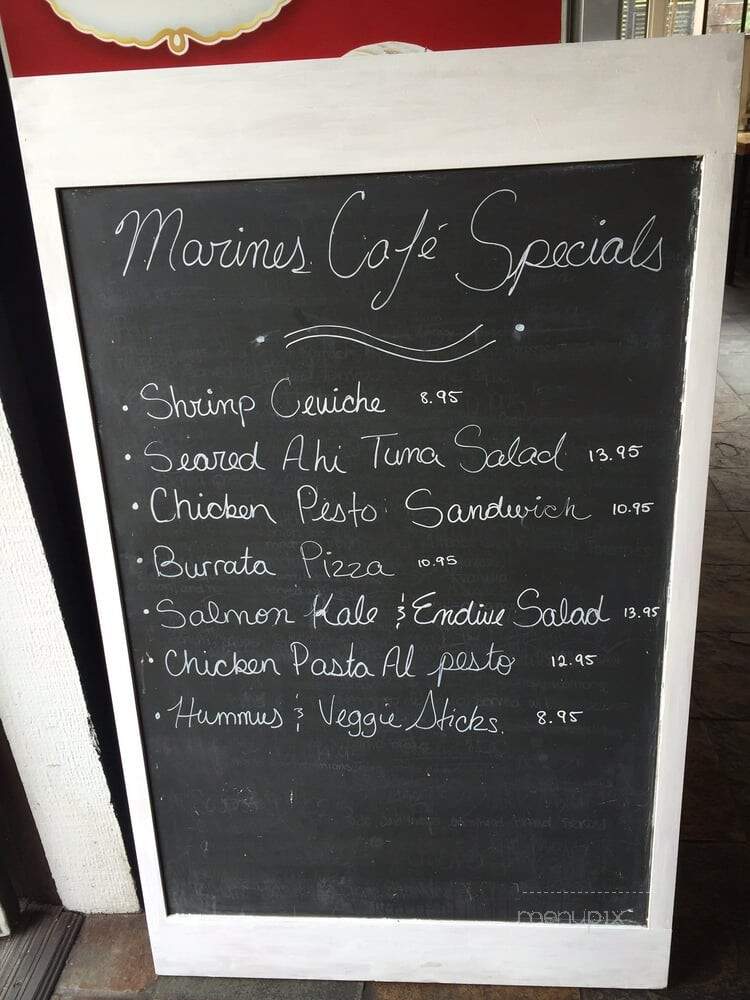 Marines Café Specials
• Shrimp Ceviche 8.95
• Seared Ahi Tuna Salad 13.95
• Chicken Pesto Sandwich 10.95
• Burrata Pizza 10.95
• Salmon Kale & Endive Salad 13.95
• Chicken Pasta Al pesto 12.95
• Hummus & Veggie Sticks. 8.95
menupix